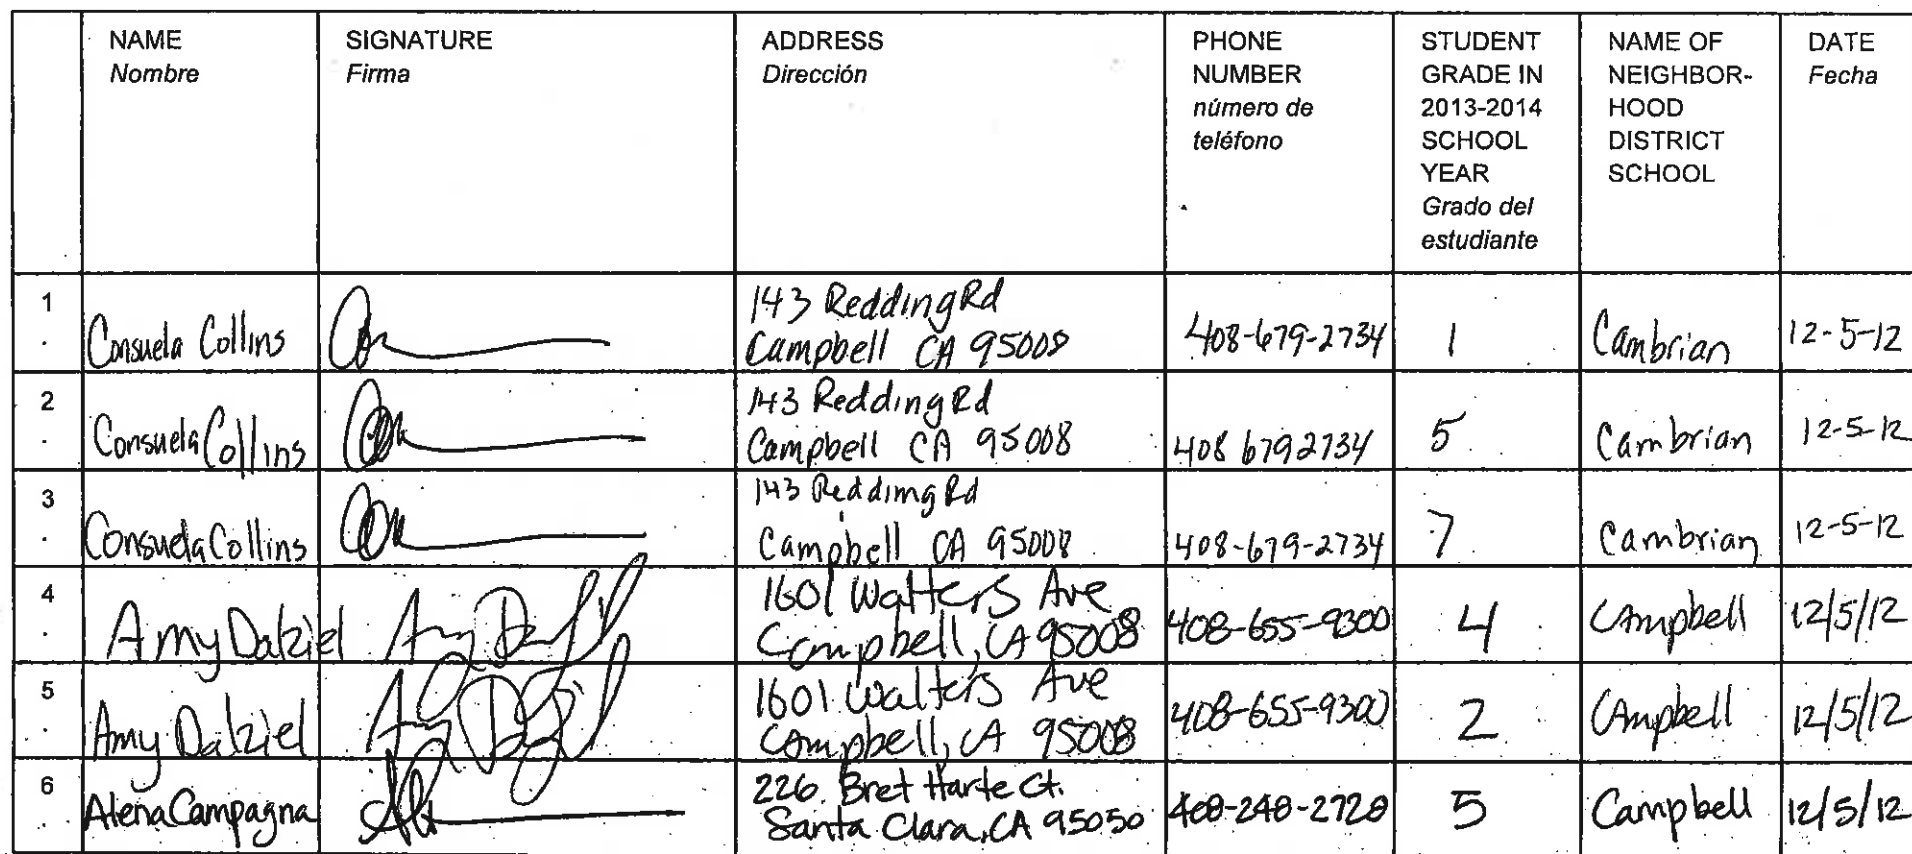 NAME
Nombre
SIGNATURE
Firma
ADDRESS
Dirección
PHONE
NUMBER
número de
teléfono
STUDENT
GRADE IN
2013-2014
SCHOOL
YEAR
Grado del
estudiante
NAME OF
NEIGHBOR-
HOOD
DISTRICT
SCHOOL
DATE
Fecha
1
.
Consuela Collins
143 Redding Rd
Campbell CA 95008
408-679-2734
1
Cambrian
12-5-12
2
.
Consuela Collins
143 Redding Rd
Campbell CA 95008
408 679 2734
5
Cambrian
12-5-12
3
.
Consuela Collins
143 Redding Rd
Campbell CA 95008
408-679-2734
7
Cambrian
12-5-12
4
.
Amy Dalziel
1601 Walters Ave
Campbell, CA 95008
408-655-9300
4
Campbell
12/5/12
5
.
Amy Dalziel
1601 Walters Ave
Campbell, CA 95008
408-655-9300
2
Campbell
12/5/12
6
.
Alena Campagna
226 Bret Harte Ct.
Santa Clara, CA 95050
408-248-2728
5
Campbell
12/5/12